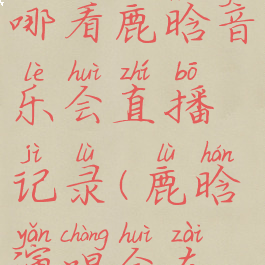 哪看鹿晗音
lè huì zhí bō
乐会直播
jì lù lù hán
记录(鹿晗
yǎn chàng huì zài
演唱会在